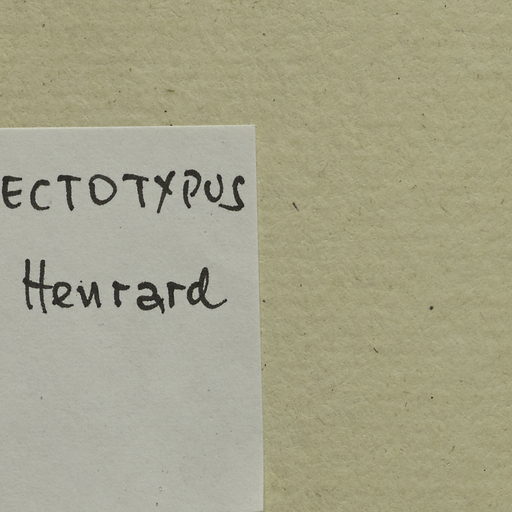 ECTOTYPUS
Henrard